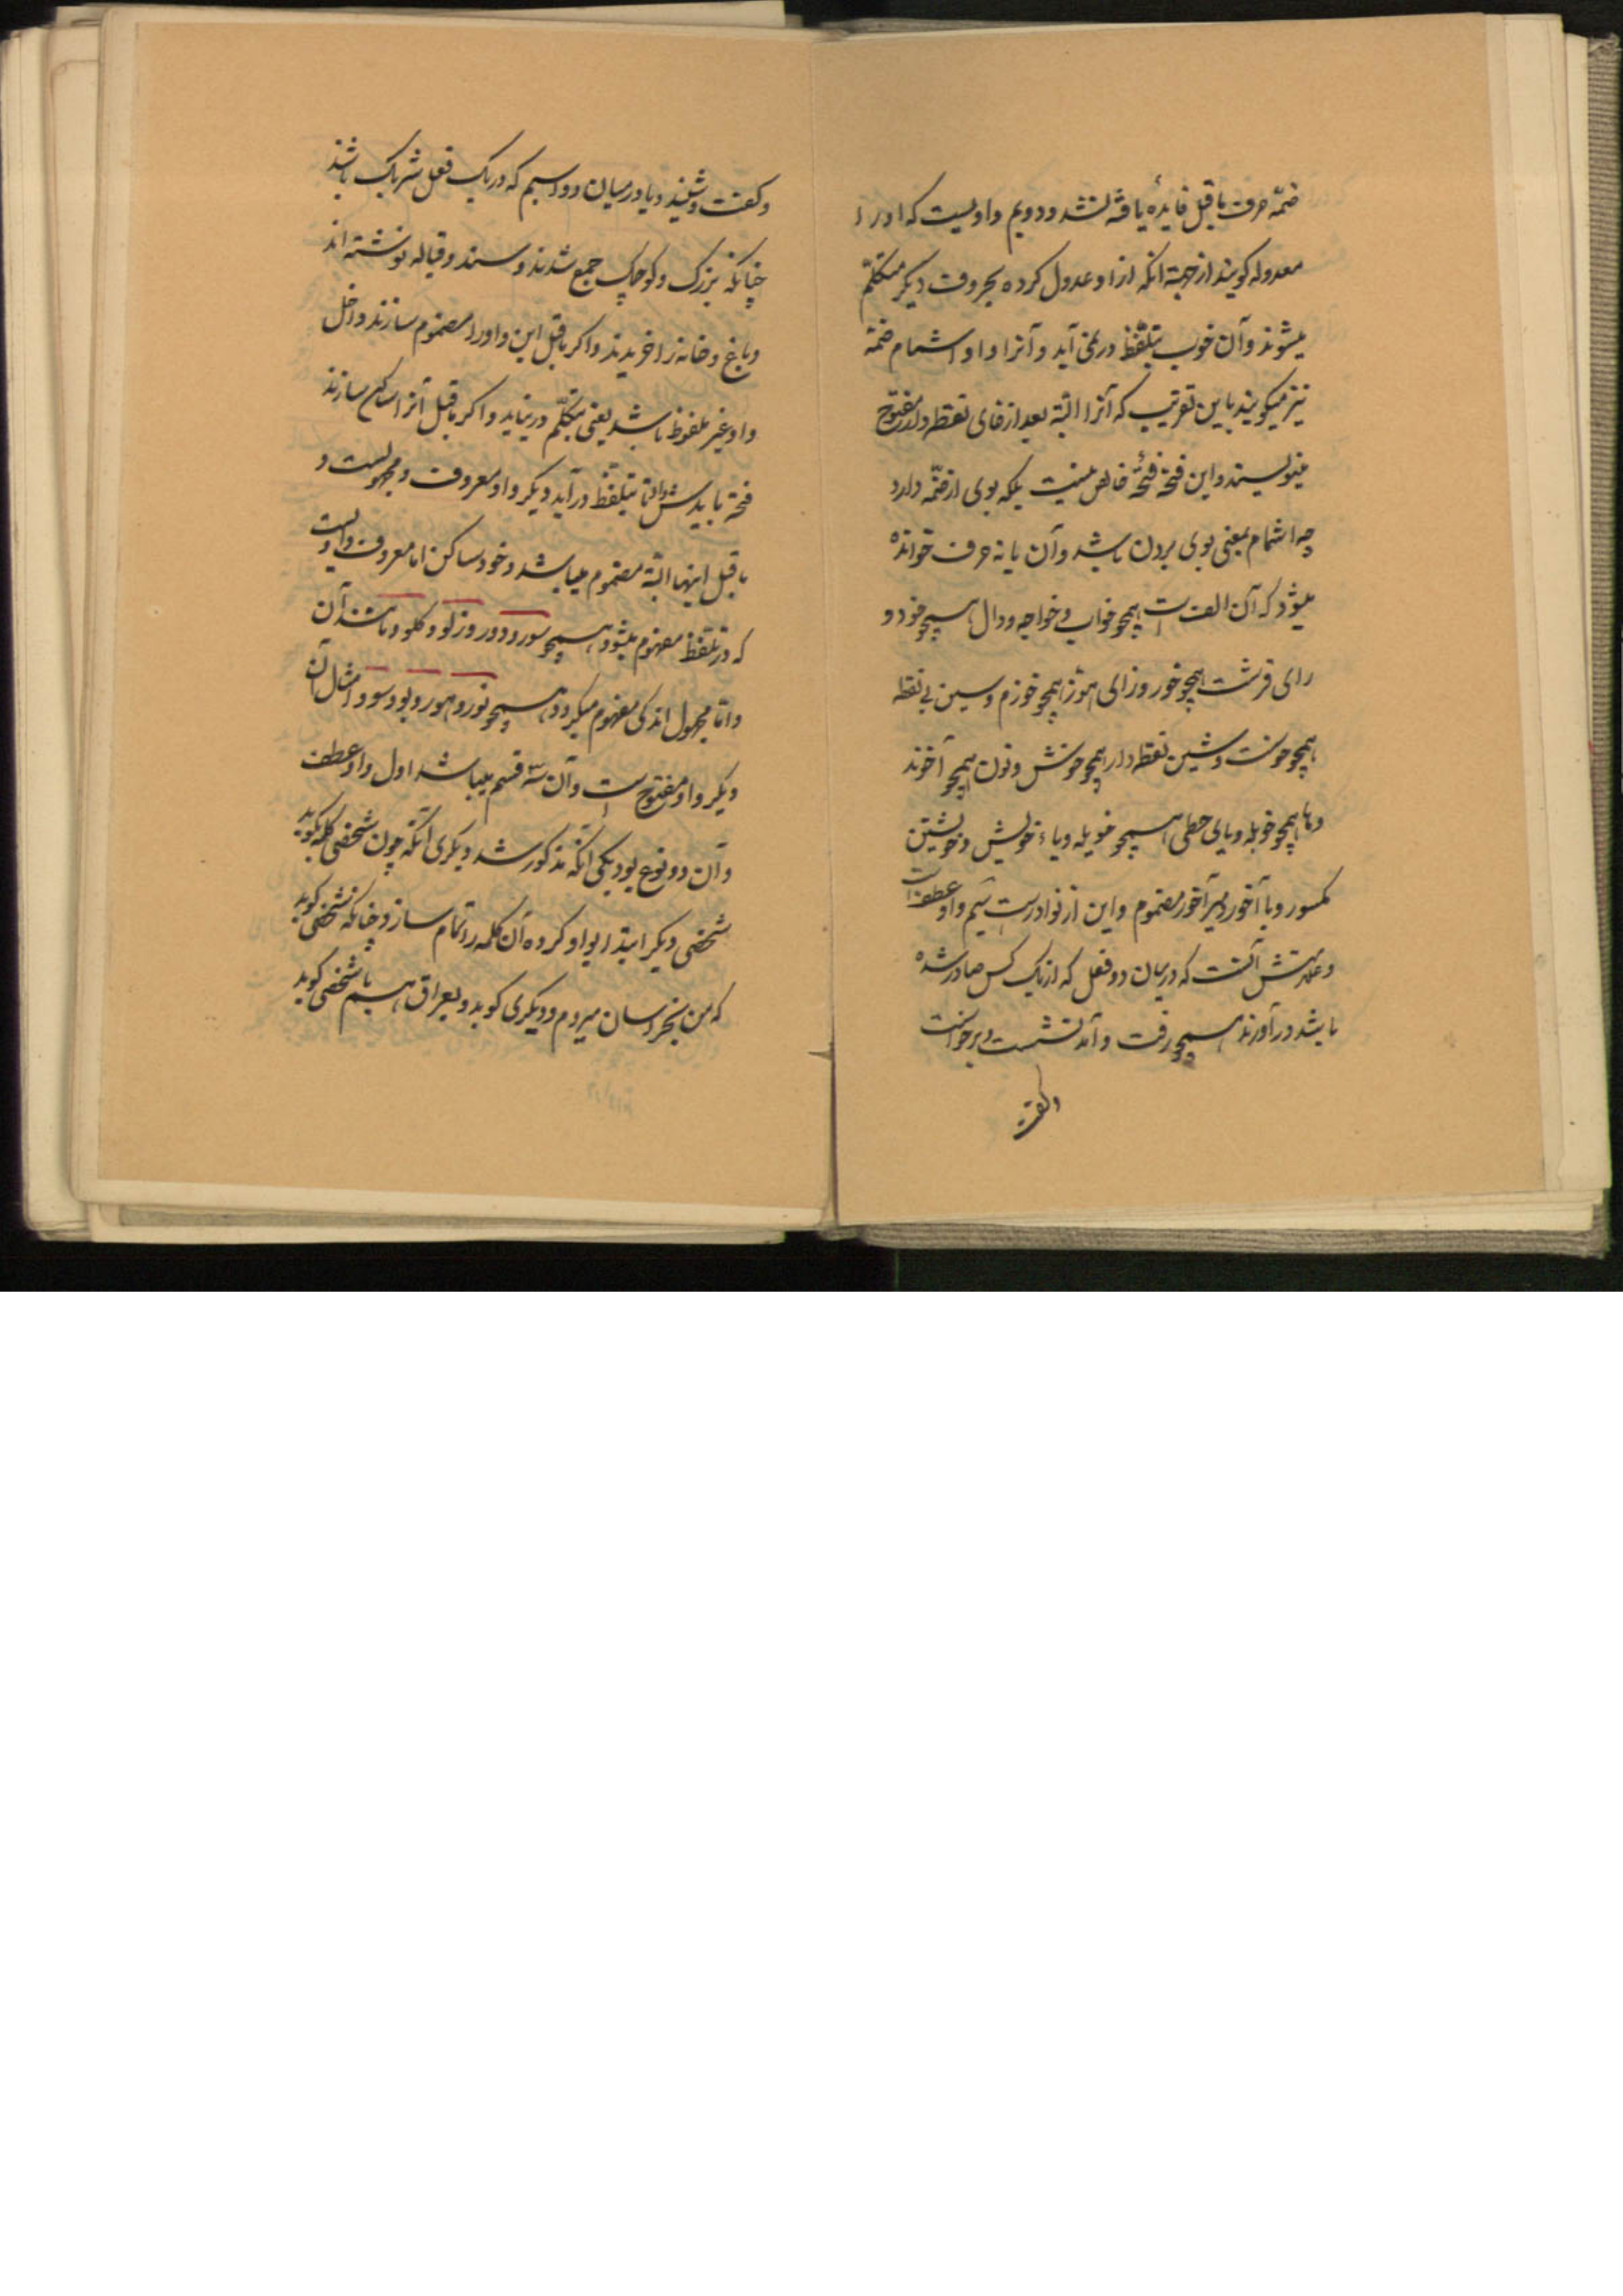 ضمّه حرف ماقبل فایدهٔ یافته نشد و دویم واویست که او را
معدوله کویند از جهة انکه ازا و عدول کرده بحروف دیکر متکلّم
میشوند و آن خوب بتلفّظ در نمی آید و آنرا واو اشمام ضمّه
نیز میکویند باین تقریب که آنرا البتّه بعد از خای نقطه دار مفتوح
مینویسند و این فتحه فتحهٔ خالص نیست بلکه بوی از ضمّه دارد
چه اشمام بمعنی بوی بردن باشد و آن با نه حرف خوانده
میشود که آن الف است همچو خواب و خواجه و دال همچو خود و
رای قرشت همچو خور و زای هوّز همچو خوزم و سین بی نقطه
همچو خوست و شین نقطه دار همچو خوش و نون همچو آخوند
و ها همچو خوهله و یای حطی همچو خویله و یاء خویش و خویشتن
مکسور و با آخور و میر آخور مضموم و این از نوادرست سیم واو عطف است
و علامتش آنست که در میان دو فعل که از یک کس صادر شده
باشد در آورند همچو رفت و آمد نشست و برخواست
و کفت
و کفت و شنید و یا در میان دو اسم که در یک فعل شریک باشند
چنانکه بزرک و کوچک جمع شدند و سند و قباله نوشته اند
و باغ و خانه را خریدند و اکر ماقبل این واو را مضموم سازند داخل
واو غیر ملفوظ باشد یعنی بتکلّم در نیاید و اکر ماقبل آنرا ساکن سازند
فتحه باید بر واو تا بتلفّظ در آید دیکر واو معروف و مجهولست و
ماقبل اینها البتّه مضموم میباشد و خود ساکن اما معروف واویست
که در تلفّظ مفهوم میشود همچو سور و دور و زلو و کلو و مانند آن
و امّا مجهول اندکی مفهوم میکردد همچو نور و هور و بود و سود و امثال آن
دیکر واو مفتوح است و آن سه قسم میباشد اول واو عطف
و آن دو نوع بود یکی انکه مذکور شد دیکری آنکه چون شخصی کلمه بکوید
شخصی دیکر ابتدا بواو کرده آن کلمه را تمام سازد چنانکه شخصی کوید
که من بخراسان میروم و دیکری کوید و بعراق هم یا شخصی کوید